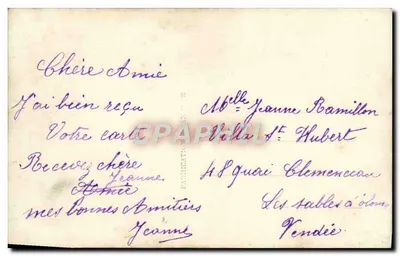 Chère Amie
J'ai bien reçu
Votre carte
Recevez chère
Jeanne
Amie
mes bonnes Amitiés
Jeanne
Melle Jeanne Ramillon
Villa St Hubert
48 quai Clemenceau
Les Sables d'olonne
Vendée